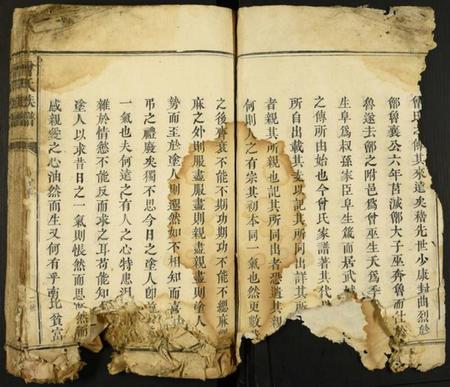 曾氏之傳其來遠矣稽先世少康封曲烈於
鄫魯襄公六年莒滅鄫太子巫奔魯而仕於
魯遂去鄫之附邑爲曾巫生夭爲季
生阜爲叔孫家臣阜生蒧而居武城
之傳所由始也今曾氏家譜著其代
所自出載其夫以記其所同出詳其所
者親其所親也記其所同出者恐遺其初
何則人之有宗其初本同一氣也然更數
之後齊衰不能不期功期功不能不緦麻
麻之外則服盡服盡則親盡親盡則塗人
勢而至於塗人則邈然如不相知而喜
弔之禮廢矣獨不思今日之塗人卽
一氣也夫何遠之有人之心特患汩
雜於情慾不能反而求之耳苟能知
塗人以求昔日之一氣則悵然而思
感親愛之心油然而生又何有乎南北貧富
氏族譜